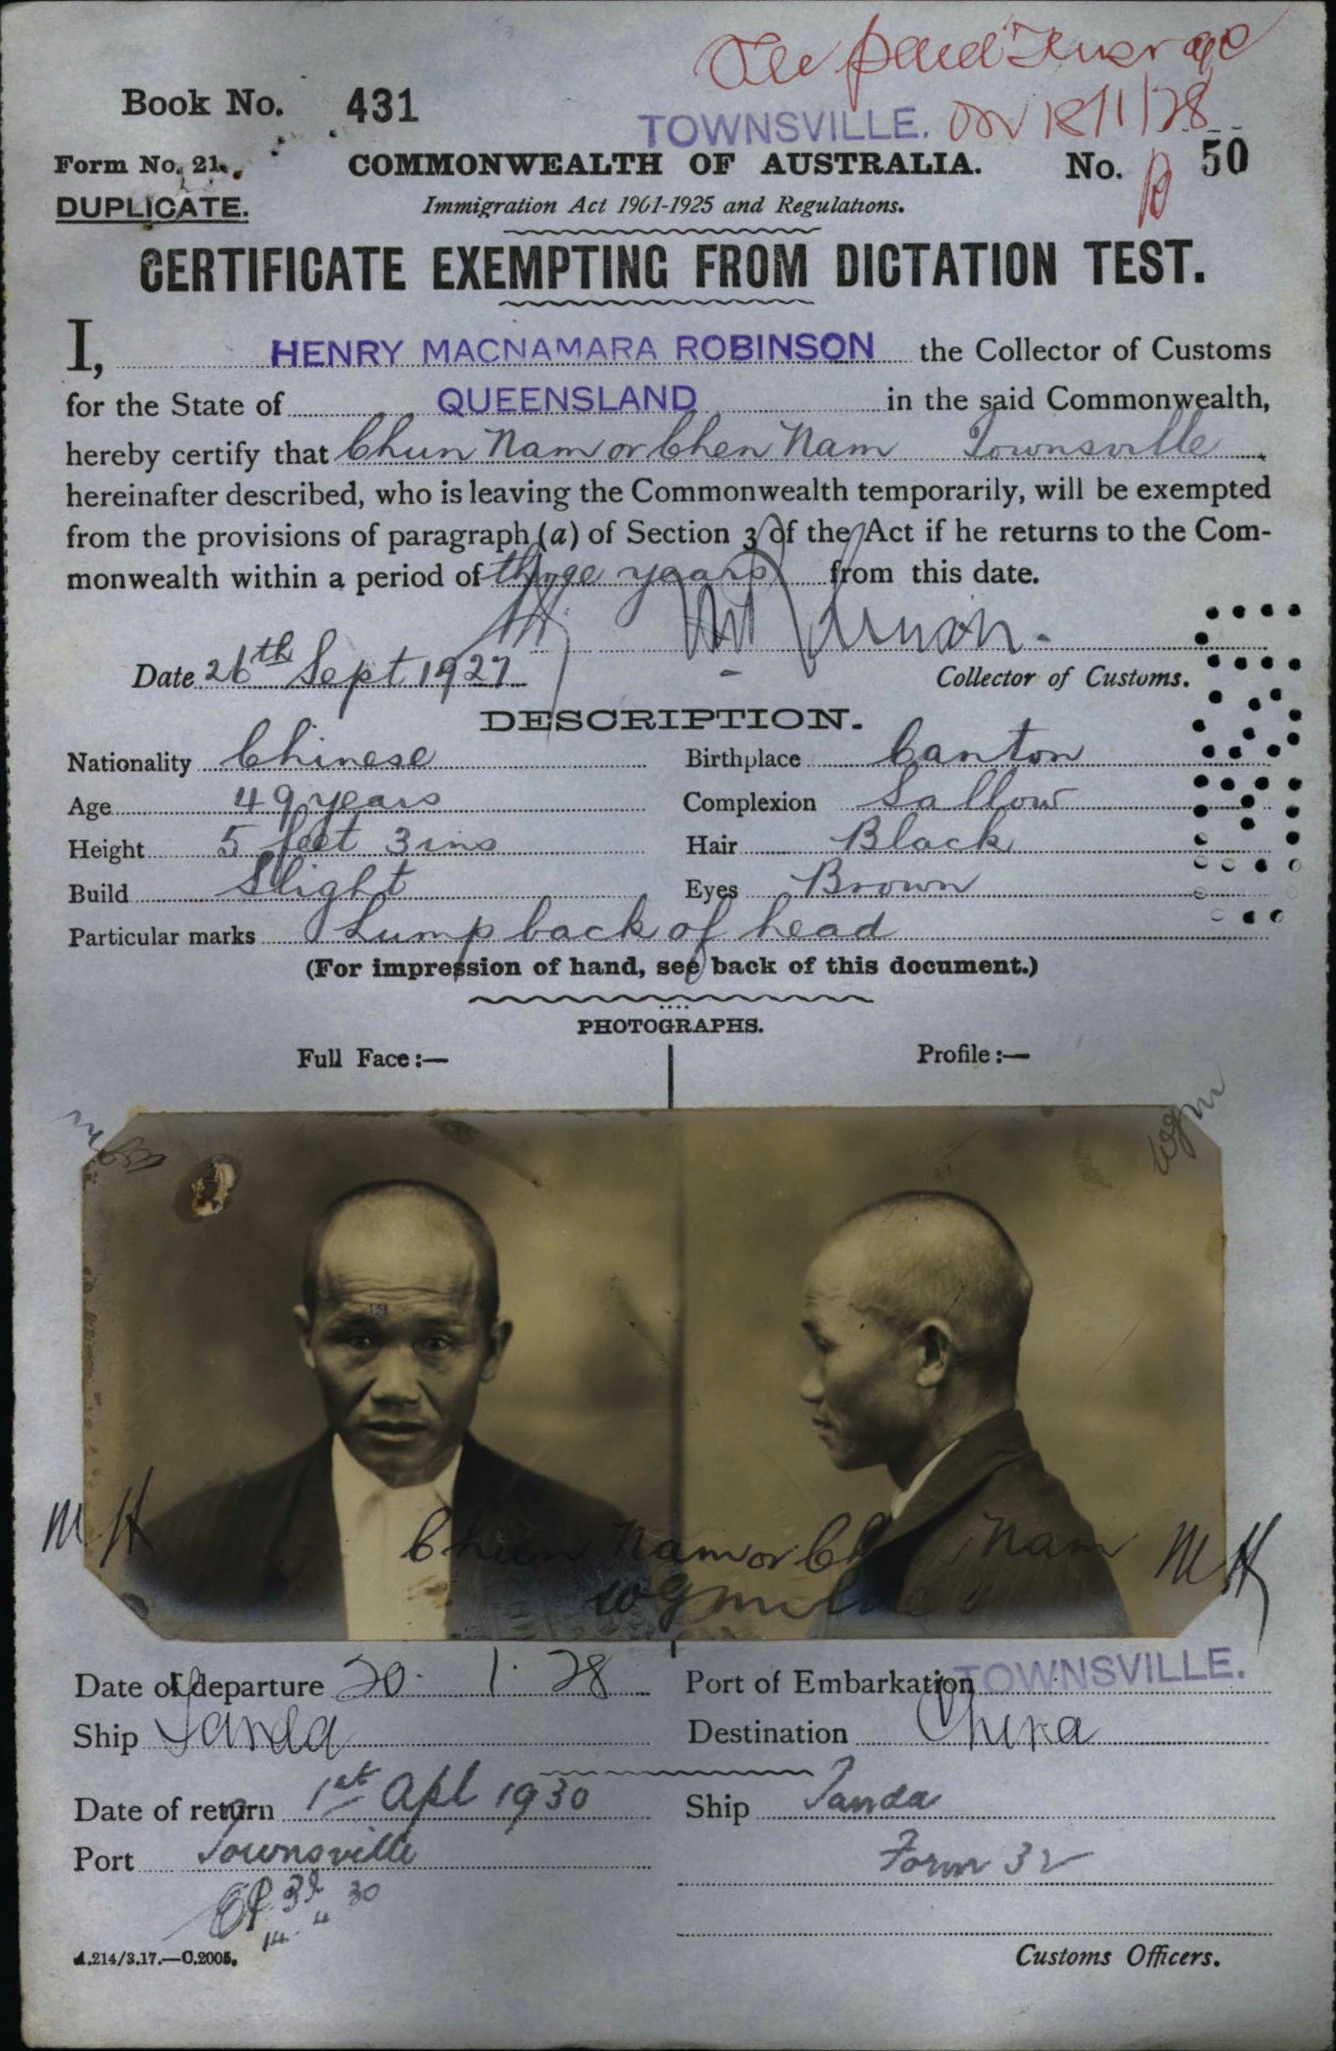 Book No. 431
TOWNSVILLE. on 18/1/28
Form No. 21. COMMONWEALTH OF AUSTRALIA. No. 50
DUPLICATE. Immigration Act 1901-1925 and Regulations.
CERTIFICATE EXEMPTING FROM DICTATION TEST.
I, HENRY MACNAMARA ROBINSON the Collector of Customs
for the State of QUEENSLAND in the said Commonwealth,
hereby certify that Chun Nam or Chen Nam Townsville
hereinafter described, who is leaving the Commonwealth temporarily, will be exempted
from the provisions of paragraph (a) of Section 3 of the Act if he returns to the Com-
monwealth within a period of three years from this date.
Date 26th Sept 1927
Collector of Customs.
DESCRIPTION.
Nationality Chinese Birthplace Canton
Age 49 years Complexion Sallow
Height 5 feet 3 ins Hair Black
Build Slight Eyes Brown
Particular marks Lump back of head
(For impression of hand, see back of this document.)
PHOTOGRAPHS.
Full Face:— Profile:—
wgm
M H Chun Nam or Ch Nam M H
Date of departure 20. 1. 28 Port of Embarkation TOWNSVILLE.
Ship Tanda Destination China
Date of return 1st Apl 1930 Ship Tanda
Port Townsville Form 32
14 4 30
A.214/3.17.—C.2005. Customs Officers.